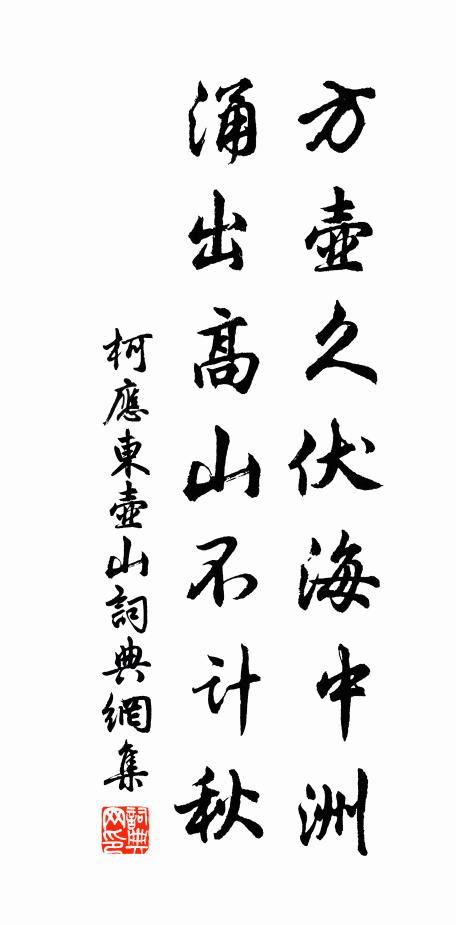 方壺久伏海中洲
涌出高山不計秋
柯應東壺山詞典網集
詞典
网印